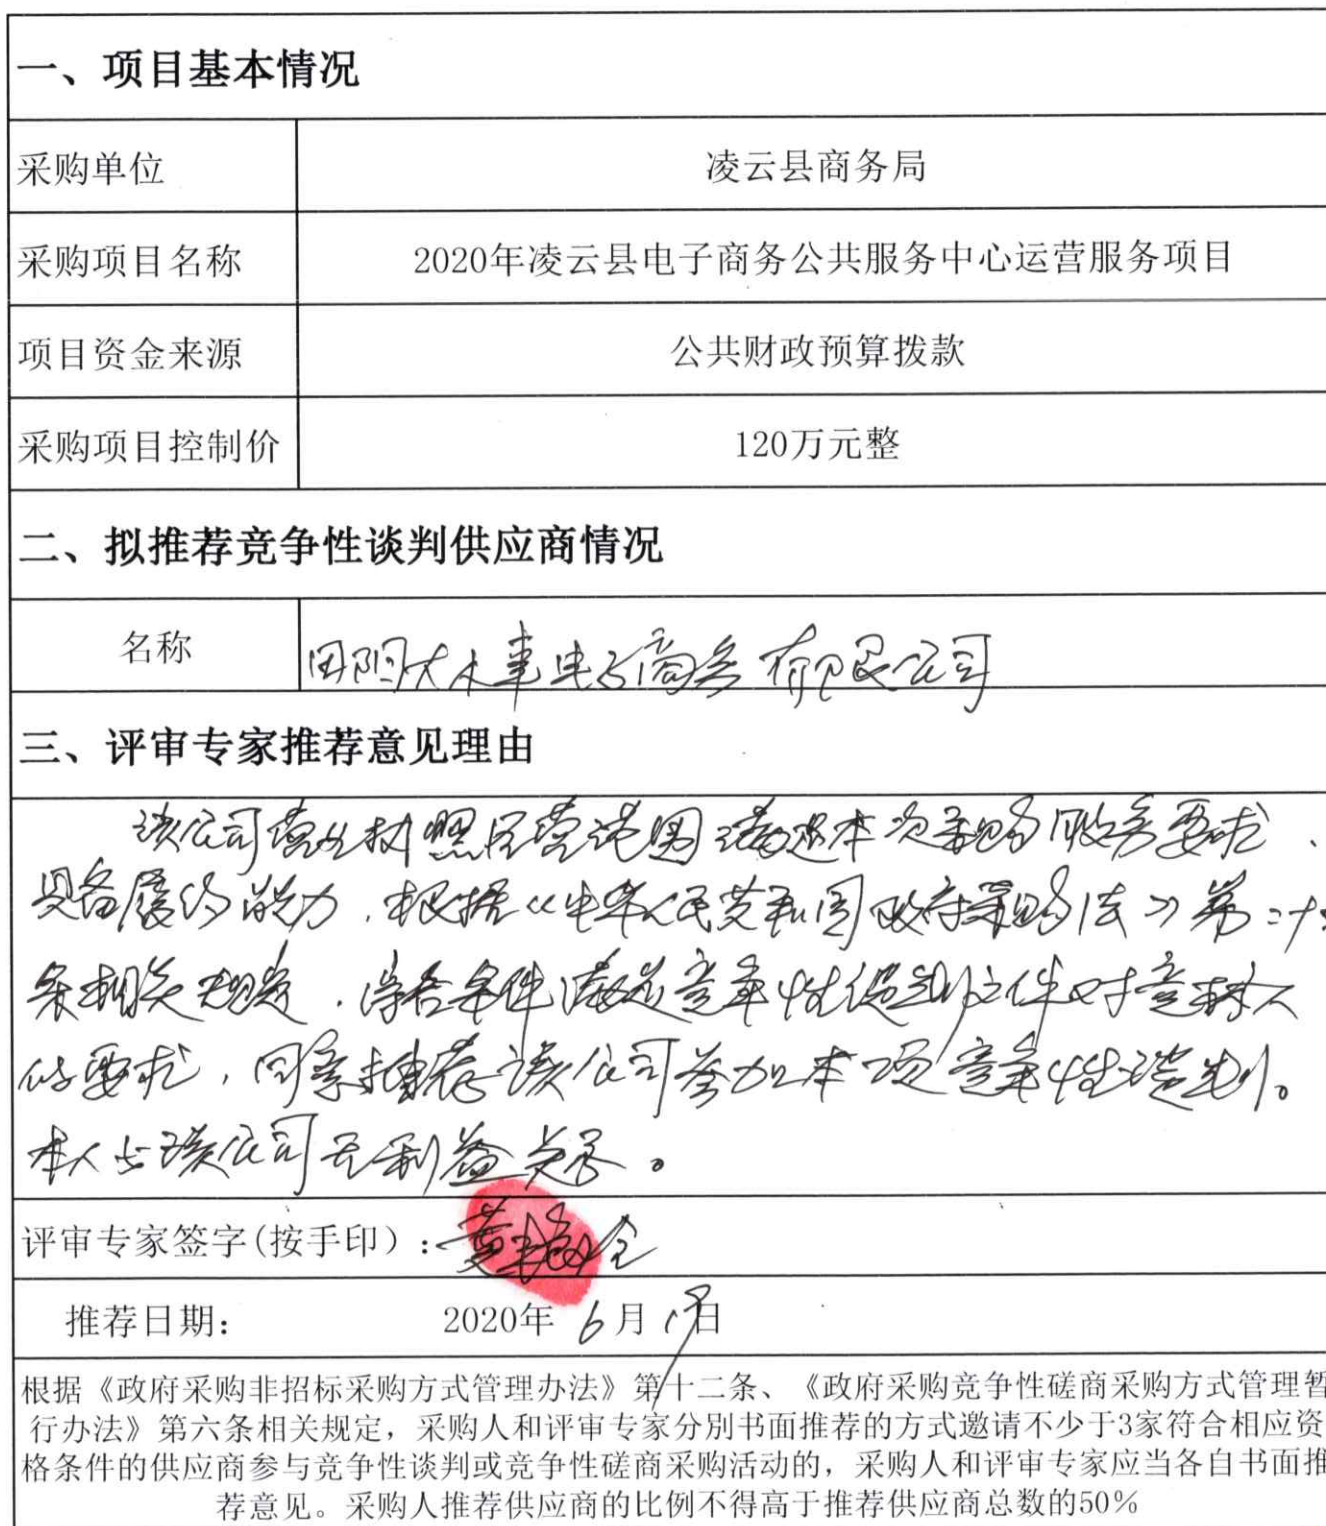 一、项目基本情况
采购单位 凌云县商务局
采购项目名称 2020年凌云县电子商务公共服务中心运营服务项目
项目资金来源 公共财政预算拨款
采购项目控制价 120万元整
二、拟推荐竞争性谈判供应商情况
名称 田阳大木事电子商务有限公司
三、评审专家推荐意见理由
该公司营业执照经营范围满足本次采购服务要求、
具备履约能力，根据《中华人民共和国政府采购法》第二十
条相关规定，综合条件满足竞争性谈判文件对竞标人
的要求，同意推荐该公司参加本项竞争性谈判。
本人与该公司无利益关系。
评审专家签字(按手印）：黄
推荐日期： 2020年 6月 日
根据《政府采购非招标采购方式管理办法》第十二条、《政府采购竞争性磋商采购方式管理暂
行办法》第六条相关规定，采购人和评审专家分别书面推荐的方式邀请不少于3家符合相应资
格条件的供应商参与竞争性谈判或竞争性磋商采购活动的，采购人和评审专家应当各自书面推
荐意见。采购人推荐供应商的比例不得高于推荐供应商总数的50%